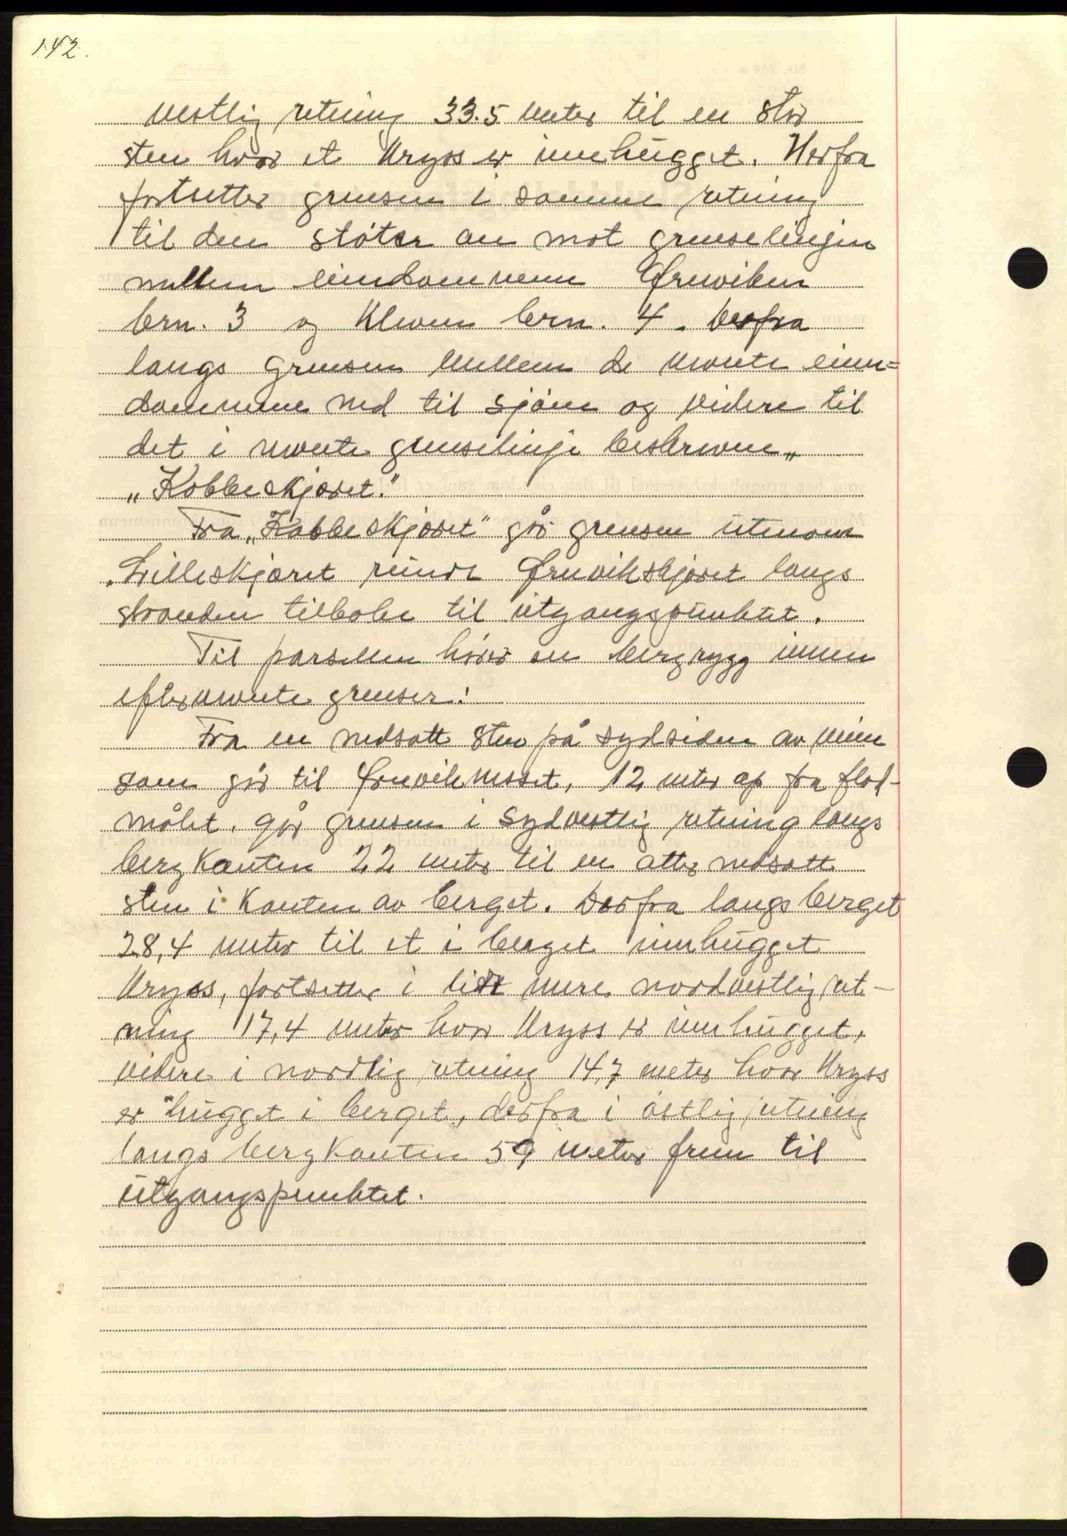 142.
vestlig retning 33.5 meter til en stor
sten hvor et kryss er innhugget. Herfra
fortsetter grensen i samme retning
til den støter an mot grenselinjen
mellem eiendommene Ørnviken
brn. 3 og Kleven brn. 4. Derfra
langs grensen mellem de nevnte eien=
dommene ned til sjøen og videre til
det i nevnte grenselinje beskrevne „
„Kobbeskjæret."
Fra „Kobbeskjæret" går grensen utenom
Lilleskjæret rundt Ørnvikskjæret langs
stranden tilbake til utgangspunktet.
Til parsellen hører en bergrygg innen
efternevnte grenser:
Fra en nedsatt sten på sydsiden av veien
som går til Ørnviknesset, 12 meter op fra flod-
målet, går grensen i sydvestlig retning langs
bergkanten 22 meter til en atter nedsatt
sten i kanten av berget. Derfra langs berget
28,4 meter til et i berget innhugget
kryss, fortsetter i litt mere nordvestlig ret-
ning 17,4 meter hvor kryss er innhugget,
videre i nordlig retning 14,7 meter hvor kryss
er hugget i berget, derfra i østlig retning
langs bergkanten 59 meter frem til
utgangspunktet.